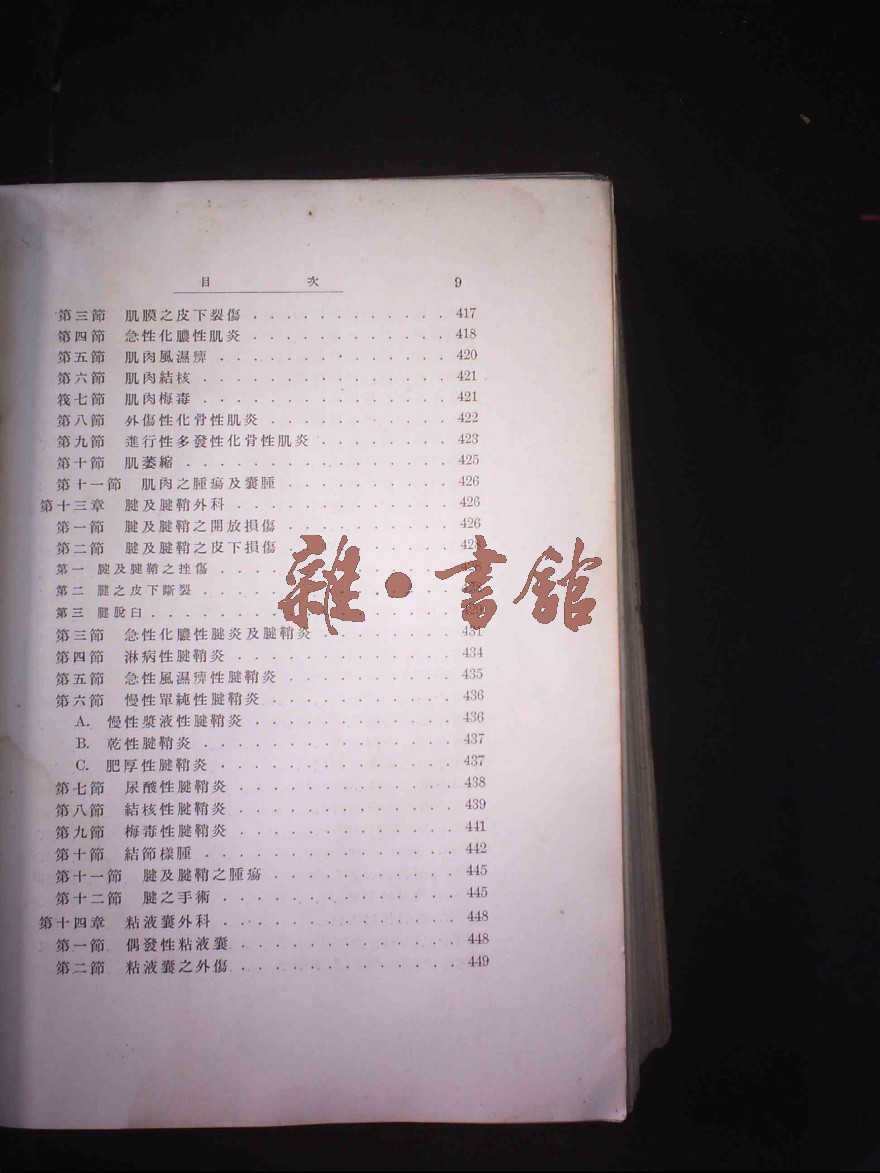 目 次 9
第三節 肌膜之皮下裂傷 . . . . . . . . . . . . 417
第四節 急性化膿性肌炎 . . . . . . . . . . . . 418
第五節 肌肉風濕癠 . . . . . . . . . . . . . . 420
第六節 肌肉結核 . . . . . . . . . . . . . . . 421
筏七節 肌肉梅毒 . . . . . . . . . . . . . . . 421
第八節 外傷性化骨性肌炎 . . . . . . . . . . . 422
第九節 進行性多發性化骨性肌炎 . . . . . . . . 423
第十節 肌萎縮 . . . . . . . . . . . . . . . . 425
第十一節 肌肉之腫瘍及囊腫 . . . . . . . . . . 426
第十三章 腱及腱鞘外科 . . . . . . . . . . . . . 426
第一節 腱及腱鞘之開放損傷 . . . . . . . . . . 426
第二節 腱及腱鞘之皮下損傷 . . . . . . . . . .
第一 腱及腱鞘之挫傷 . . . . . . . . .
第二 腱之皮下斷裂 . . . . . . . . .
第三 腱脫臼 . . . . . . . . .
雜·書館
第三節 急性化膿性腱炎及腱鞘炎 . . . . . . . . 431
第四節 淋病性腱鞘炎 . . . . . . . . . . . . . 434
第五節 急性風濕癠性腱鞘炎 . . . . . . . . . . 435
第六節 慢性單純性腱鞘炎 . . . . . . . . . . . 436
A. 慢性漿液性腱鞘炎 . . . . . . . . . . . . 436
B. 乾性腱鞘炎 . . . . . . . . . . . . . . . 437
C. 肥厚性腱鞘炎 . . . . . . . . . . . . . . 437
第七節 尿酸性腱鞘炎 . . . . . . . . . . . . . 438
第八節 結核性腱鞘炎 . . . . . . . . . . . . . 439
第九節 梅毒性腱鞘炎 . . . . . . . . . . . . . 441
第十節 結節樣腫 . . . . . . . . . . . . . . . 442
第十一節 腱及腱鞘之腫瘍 . . . . . . . . . . . 445
第十二節 腱之手術 . . . . . . . . . . . . . . 445
第十四章 粘液囊外科 . . . . . . . . . . . . . . 448
第一節 偶發性粘液囊 . . . . . . . . . . . . . 448
第二節 粘液囊之外傷 . . . . . . . . . . . . . 449